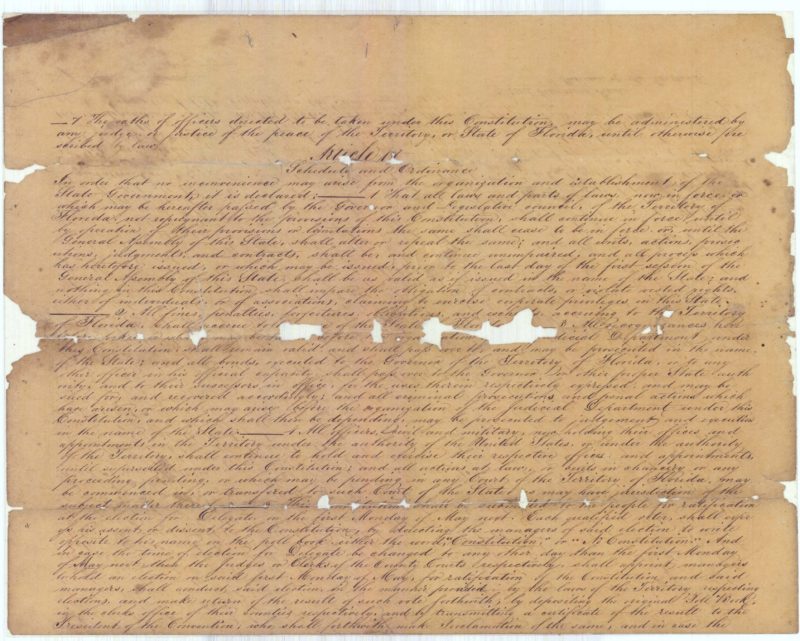 7 The oaths of officers directed to be taken under this Constitution, may be administered by
any judge or justice of the peace of the Territory, or State of Florida, until otherwise pre
scribed by law.
Article 17
Schedule and Ordinance
In order that no inconvenience may arise from the organization and establishment of the
State Government, it is declared; 1 That all laws and parts of laws now in force, or
which may be hereafter passed by the Governor and Legislative council of the Territory of
Florida, not repugnant to the provisions of this Constitution, shall continue in force until
by operation of their provisions or limitations the same shall cease to be in force or, until the
General Assembly of this State, shall alter or repeal the same; and all writs, actions, prosec
utions, judgments, and contracts, shall be, and continue unimpaired, and all process which
has heretofore issued, or which may be issued, prior to the last day of the first session of the
General Assembly of this State, shall be as valid as if issued in the name of the State; and
nothing in this Constitution shall impair the obligation of contracts, or violate vested rights,
either of individuals, or of associations, claiming to exercise corporate privileges in this State.
2 All fines, penalties, forfeitures, obligations and escheats accruing to the Territory
of Florida, shall accrue to the use of the State of Florida 3 All recognizances here
before the organization Judicial Department, under
this Constitution, shall remain valid, and shall pass over to, and may be prosecuted in the name,
of the State; and all bonds, executed to the Governor of the Territory of Florida, or to any
other officer in his official capacity, shall pass over to the Governor, or other proper State auth
ority, and to their successors in office, for the uses therein respectively expressed; and may be
sued for, and recovered accordingly; and all criminal prosecutions, and penal actions which
have arisen, or which may arise before the organization of the Judicial Department under this
Constitution, and which shall then be depending, may be prosecuted to judgement, and execution
in the name of the State. 4 All officers, civil and military, now holding their offices and
appointments, in the Territory under the authority of the United States, or under the authority
of the Territory, shall continue to hold and exercise their respective offices and appointments,
until superseded under this Constitution; and all actions at law, or suits in chancery, or any
proceeding pending, or which may be pending in any Court of the Territory of Florida, may
be commenced in, or transferred to such Court of the State, as may have jurisdiction of the
subject matter thereof. 5 This Constitution shall be submitted to the people for ratification
at the election for Delegate on the first Monday of May next. Each qualified voter, shall expr
ess his assent or dissent to the Constitution, by directing the managers of said election to write
opposite to his name on the poll book, either the word "Constitution," or "No Constitution." And
in case the time of election for Delegate be changed to any other day than the first Monday
of May next, then the judges or Clerks of the County Courts respectively, shall appoint managers
to hold an election on said first Monday of May, for ratification of the Constitution, and said
managers, shall conduct said election, in the manner provided by the laws of the Territory, respecting
elections, and make return of the result of such vote forthwith, by depositing the original Poll Book
in the clerks office of their counties respectively, and by transmitting a certificate of the result to the
President of the Convention, who shall forthwith make Proclamation of the same; and in case the